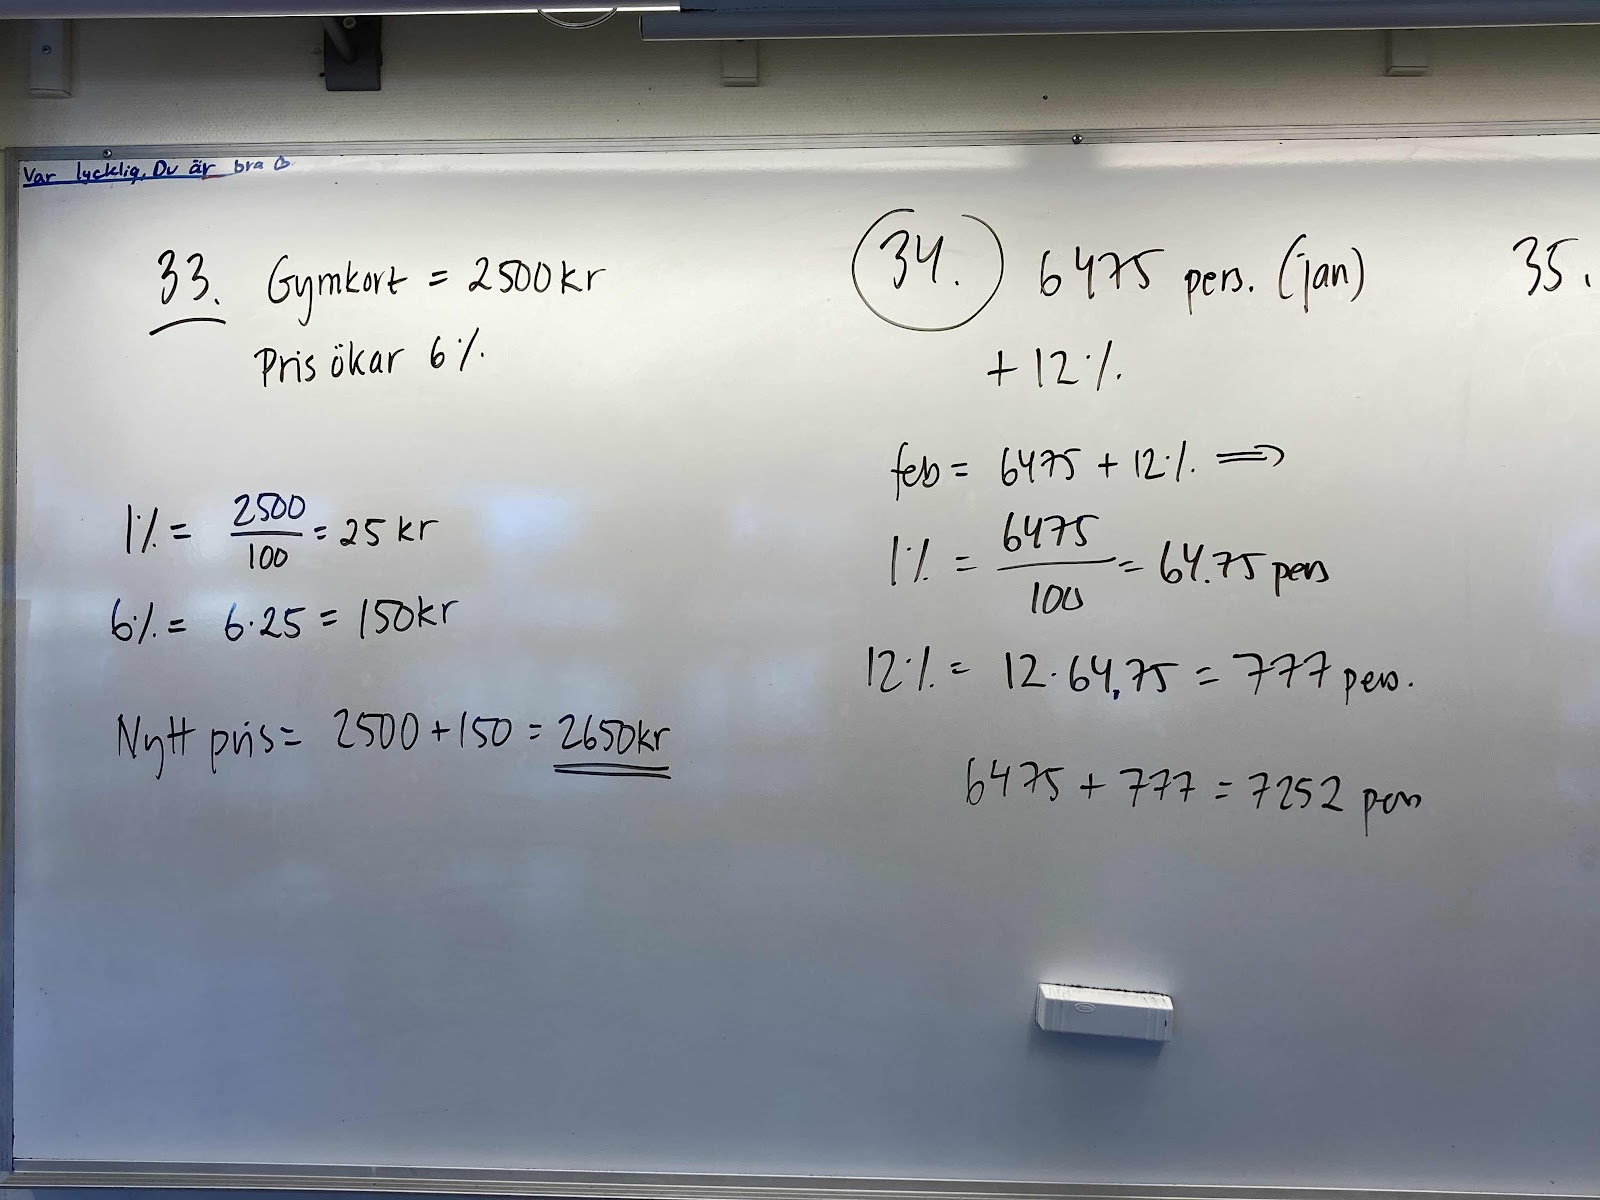 Var lycklig, Du är bra
33. Gymkort = 2500kr
Pris ökar 6%
1% = 2500/100 = 25 kr
6% = 6·25 = 150kr
Nytt pris = 2500+150 = 2650kr
34. 6475 pers. (jan)
+12%
feb = 6475 + 12% ⇒
1% = 6475/100 = 64.75 pers
12% = 12·64,75 = 777 pers.
6475 + 777 = 7252 pers
35.